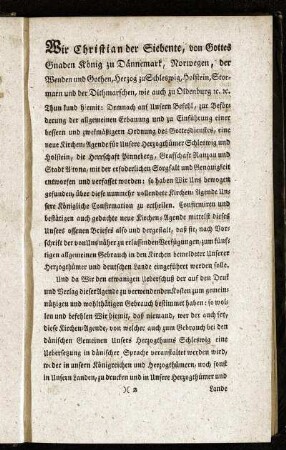 Wir Christian der Siebente, von Gottes
Gnaden König zu Dännemark, Norwegen, der
Wenden und Gothen, Herzog zu Schleswig, Holstein, Stor-
marn und der Dithmarschen, wie auch zu Oldenburg ꝛc. ꝛc.
Thun kund hiemit: Demnach auf Unsern Befehl, zur Beför-
derung der allgemeinen Erbauung und zu Einführung einer
bessern und zweckmäßigern Ordnung des Gottesdienstes, eine
neue Kirchen-Agende für Unsere Herzogthümer Schleswig und
Holstein, die Herrschaft Pinneberg, Grafschaft Ranzau und
Stadt Altona, mit der erforderlichen Sorgfalt und Genauigkeit
entworfen und verfasset worden: so haben Wir Uns bewogen
gefunden, über diese nunmehr vollendete Kirchen-Agende Un-
sere Königliche Confirmation zu ertheilen. Confirmiren und
bestätigen auch gedachte neue Kirchen-Agende mittelst dieses
Unsers offenen Briefes also und dergestalt, daß sie, nach Vor-
schrift der von Uns näher zu erlassenden Verfügungen, zum künf-
tigen allgemeinen Gebrauch in den Kirchen bemeldeter Unserer
Herzogthümer und deutschen Lande eingeführet werden solle.
Und da Wir den etwanigen Ueberschuß der auf den Druk
und Verlag dieser Agende zu verwendenden Kosten zum gemein-
nützigen und wohlthätigen Gebrauch bestimmet haben: so wol-
len und befehlen Wir hiemit, daß niemand, wer der auch sey,
diese Kirchen-Agende, von welcher auch zum Gebrauch bei den
dänischen Gemeinen Unsers Herzogthums Schleswig eine
Uebersetzung in dänischer Sprache veranstaltet werden wird,
weder in unsern Königreichen und Herzogthümern, noch sonst
in Unsern Landen, zu drucken und in Unsere Herzogthümer und
)( 2 Lande